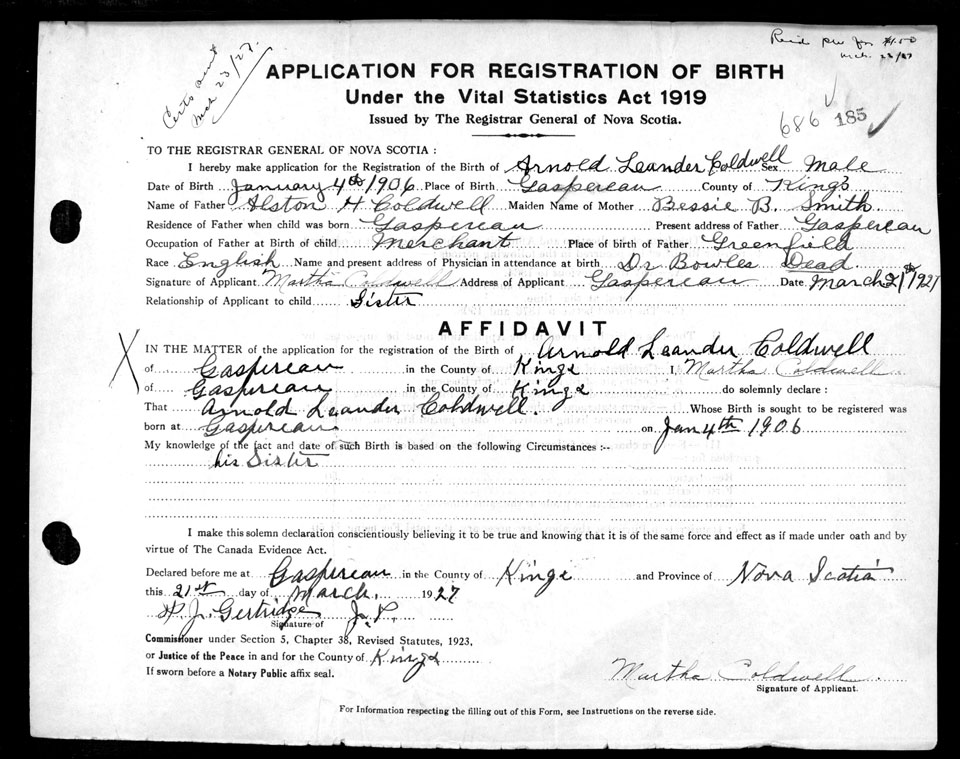 Certs sent
Mch 23/27.
Rec'd
Mch. 23/27
APPLICATION FOR REGISTRATION OF BIRTH
Under the Vital Statistics Act 1919
Issued by The Registrar General of Nova Scotia.
686 185
TO THE REGISTRAR GENERAL OF NOVA SCOTIA :
I hereby make application for the Registration of the Birth of Arnold Leander Coldwell Sex Male
Date of Birth January 4th 1906 Place of Birth Gaspereau County of Kings
Name of Father Alston H Coldwell Maiden Name of Mother Bessie B. Smith
Residence of Father when child was born Gaspereau Present address of Father Gaspereau
Occupation of Father at Birth of child Merchant Place of birth of Father Greenfield
Race English Name and present address of Physician in attendance at birth Dr Bowles Dead
Signature of Applicant Martha Coldwell Address of Applicant Gaspereau Date March 21st 1927
Relationship of Applicant to child Sister
AFFIDAVIT
X
IN THE MATTER of the application for the registration of the Birth of Arnold Leander Coldwell
of Gaspereau in the County of Kings I, Martha Coldwell
of Gaspereau in the County of Kings do solemnly declare :
That Arnold Leander Coldwell. Whose Birth is sought to be registered was
born at Gaspereau on Jan 4th 1906
My knowledge of the fact and date of such Birth is based on the following Circumstances :--
his Sister
I make this solemn declaration conscientiously believing it to be true and knowing that it is of the same force and effect as if made under oath and by
virtue of The Canada Evidence Act.
Declared before me at Gaspereau in the County of Kings and Province of Nova Scotia
this 21st day of March. 1927
Gertridge J. P.
Signature of
Commissioner under Section 5, Chapter 38, Revised Statutes, 1923,
or Justice of the Peace in and for the County of Kings
If sworn before a Notary Public affix seal.
Martha Coldwell
Signature of Applicant.
For Information respecting the filling out of this Form, see Instructions on the reverse side.